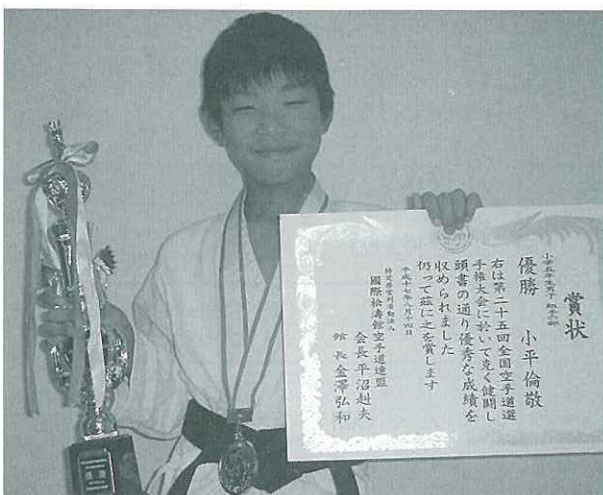 賞状
小学五年生男子 組手の部
優勝 小平倫敬
右は第二十五回全国空手道選
手権大会に於いて克く健闘し
頭書の通り優秀な成績を
収められました
仍って茲に之を賞します
平成十七年八月十四日
特定非営利活動法人
國際松濤館空手道連盟
会長 平沼赳夫
館長 金澤弘和
優勝